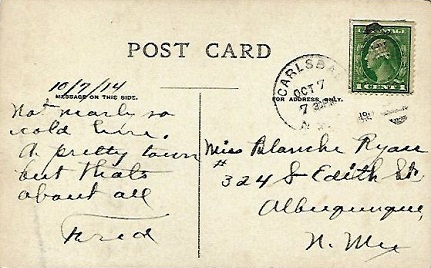 POST CARD
CARLSBAD
OCT 7
7
N.
1 CENT 1
10/7/14
MESSAGE ON THIS SIDE.
FOR ADDRESS ONLY.
Not nearly so
cold here.
A pretty town
but thats
about all
Fred
Miss Blanche Ryan
# 324 S Edith St
Albuquerque,
N. Mex